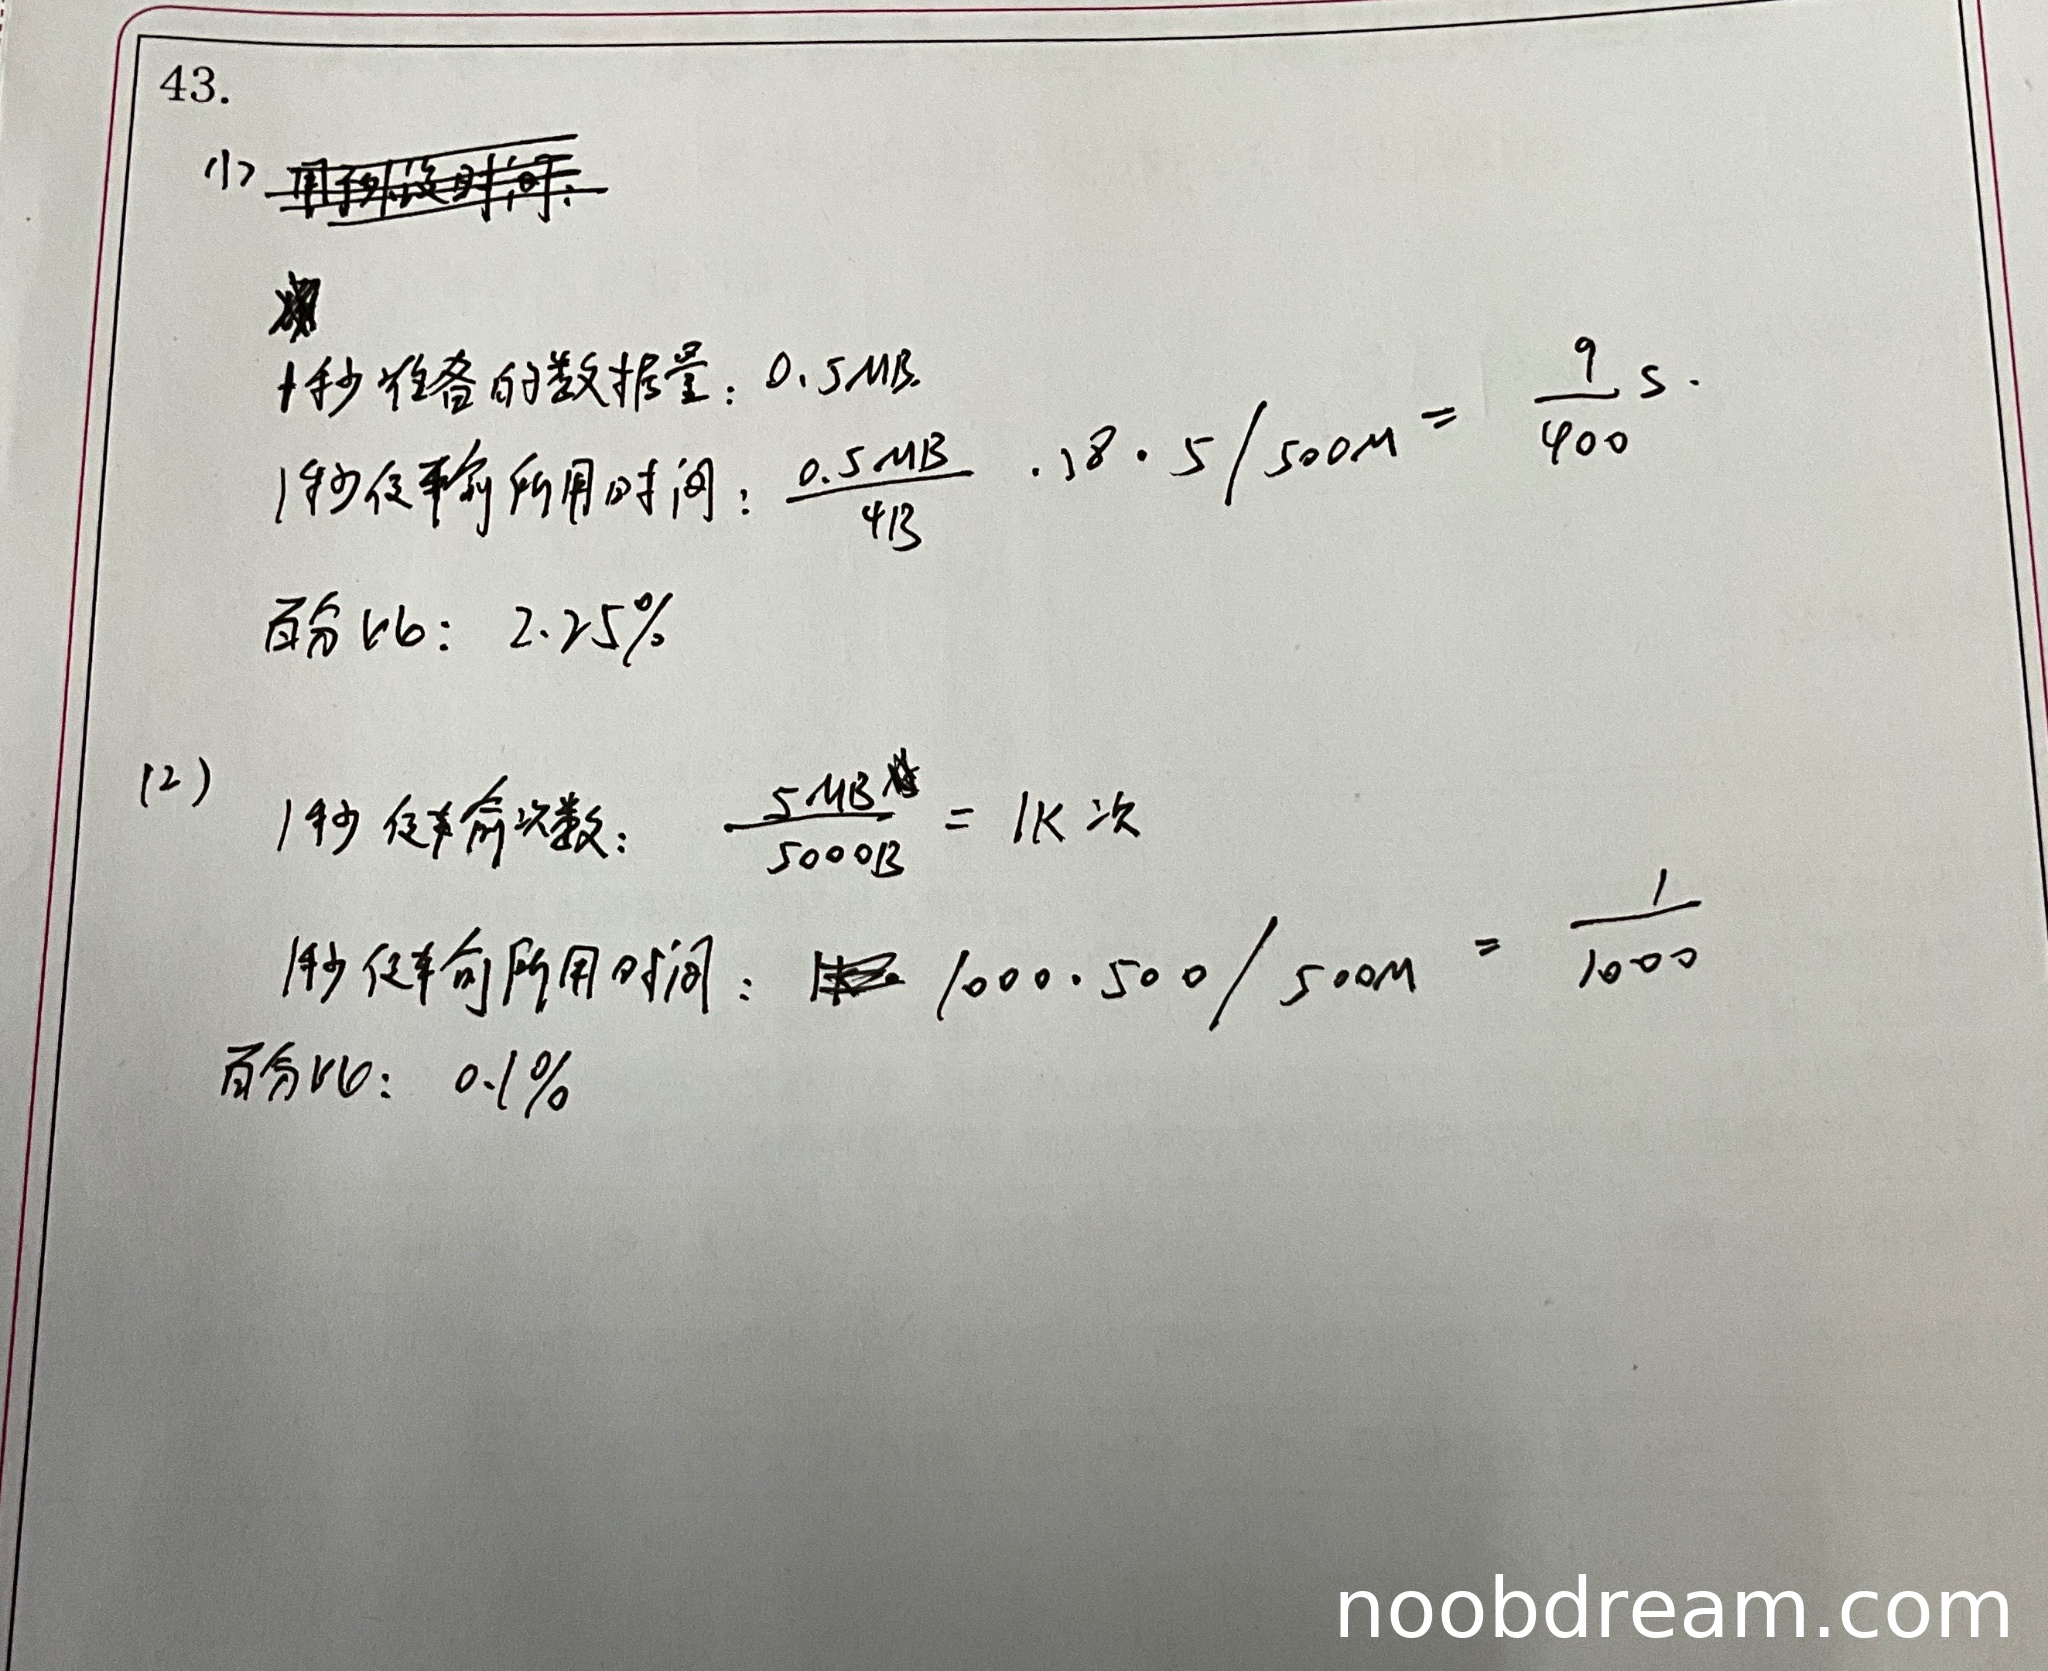 43.
(1)
1秒准备的数据量: 0.5MB.
1秒传输所用时间: 0.5MB/4B ·18·5/500M = 9/400 s.
百分比: 2.25%
(2)
1秒传输次数: 5MB/5000B = 1K次
1秒传输所用时间: 1000·500/500M = 1/1000
百分比: 0.1%
noobdream.com